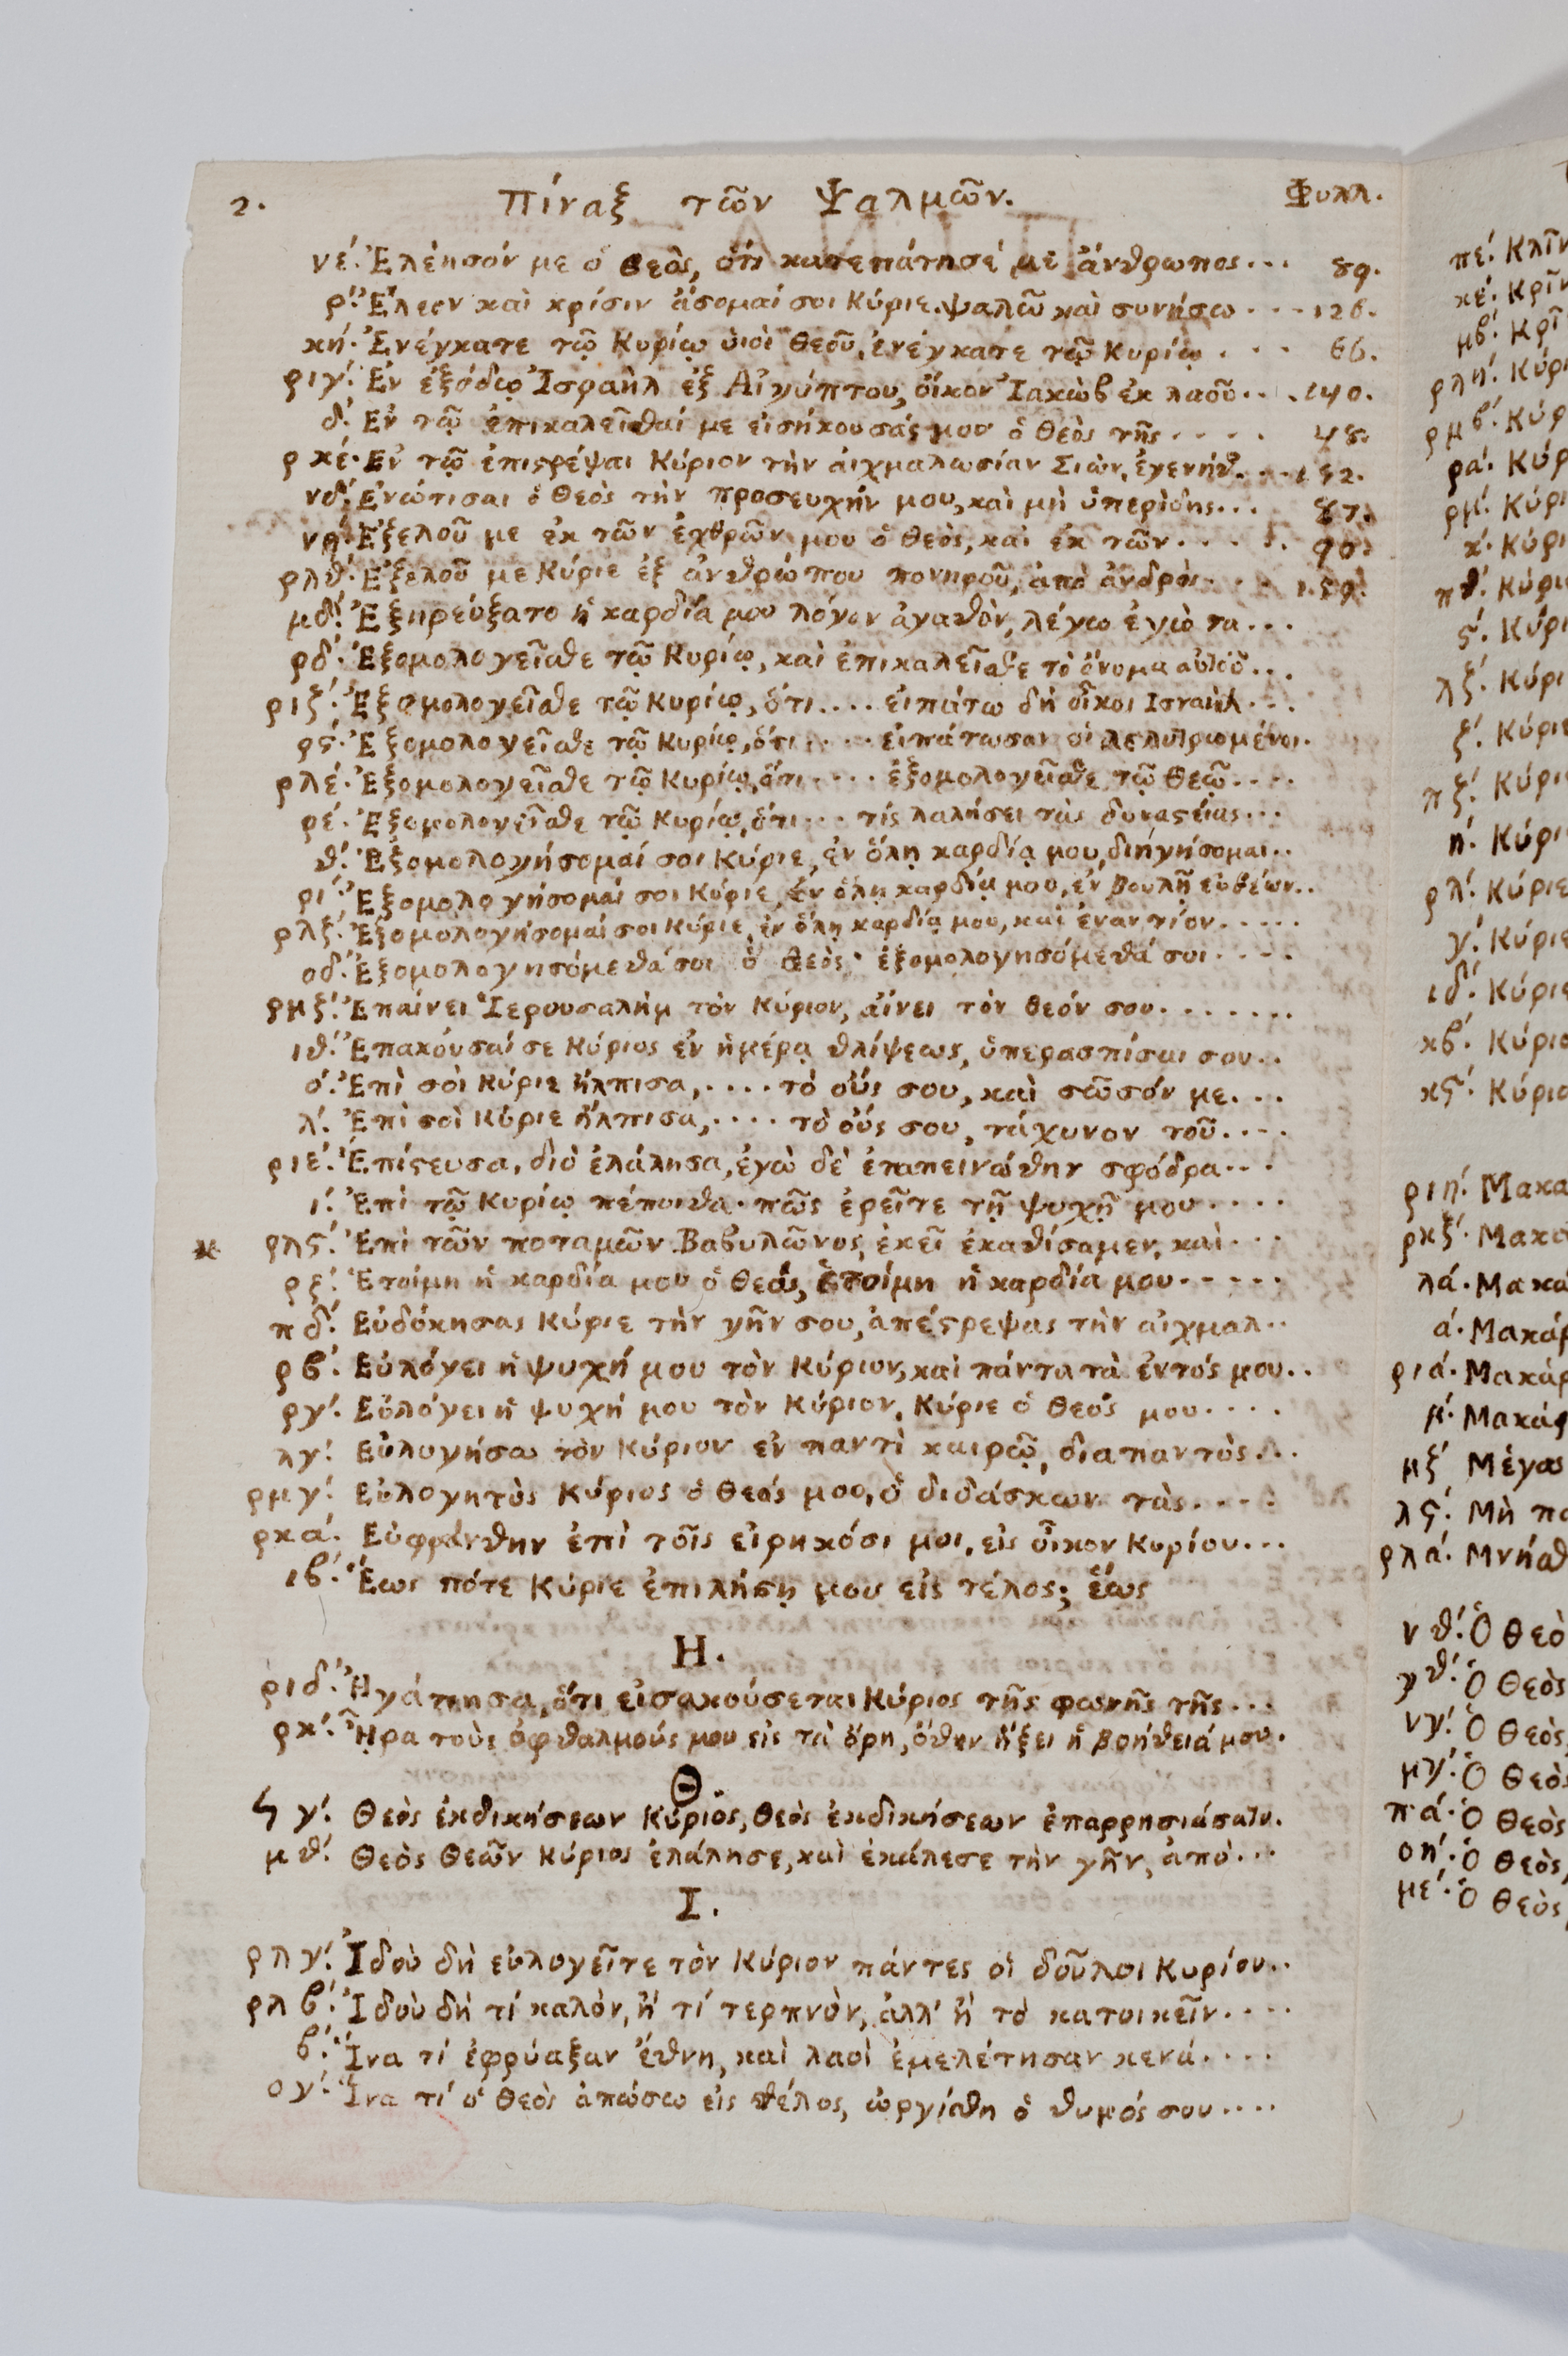 2. Πίναξ τῶν Ψαλμῶν. Φυλλ.
νέ. Ἐλέησόν με ὁ Θεὸς, ὅτι κατεπάτησέ με ἄνθρωπος... 89.
ρ΄. Ἔλεον καὶ κρίσιν ᾄσομαί σοι Κύριε. ψαλῶ καὶ συνήσω... 126.
κή. Ἐνέγκατε τῷ Κυρίῳ υἱοὶ Θεοῦ, ἐνέγκατε τῷ Κυρίῳ... 66.
ριγ΄. Ἐν ἐξόδῳ Ἰσραὴλ ἐξ Αἰγύπτου, οἴκου Ἰακὼβ ἐκ λαοῦ... 140.
δ΄. Ἐν τῷ ἐπικαλεῖσθαί με εἰσήκουσάς μου ὁ Θεὸς τῆς.... 48.
ρκέ. Ἐν τῷ ἐπιστρέψαι Κύριον τὴν αἰχμαλωσίαν Σιὼν, ἐγενήθ... 152.
νδ΄. Ἐνώτισαι ὁ Θεὸς τὴν προσευχήν μου, καὶ μὴ ὑπερίδης... 87.
νή. Ἐξελοῦ με ἐκ τῶν ἐχθρῶν μου ὁ Θεὸς, καὶ ἐκ τῶν.... 90.
ρλθ΄. Ἐξελοῦ με Κύριε ἐξ ἀνθρώπου πονηροῦ, ἀπὸ ἀνδρὸς... 159.
μδ΄. Ἐξηρεύξατο ἡ καρδία μου λόγον ἀγαθὸν, λέγω ἐγὼ τα...
ρδ΄. Ἐξομολογεῖσθε τῷ Κυρίῳ, καὶ ἐπικαλεῖσθε τὸ ὄνομα αὐτοῦ...
ριζ΄. Ἐξομολογεῖσθε τῷ Κυρίῳ, ὅτι.... εἰπάτω δὴ οἶκος Ἰσραὴλ...
ρς΄. Ἐξομολογεῖσθε τῷ Κυρίῳ, ὅτι.... εἰπάτωσαν οἱ λελυτρωμένοι.
ρλέ. Ἐξομολογεῖσθε τῷ Κυρίῳ, ὅτι.... ἐξομολογεῖσθε τῷ Θεῷ....
ρέ. Ἐξομολογεῖσθε τῷ Κυρίῳ, ὅτι... τίς λαλήσει τὰς δυναστείας...
θ΄. Ἐξομολογήσομαί σοι Κύριε, ἐν ὅλῃ καρδίᾳ μου, διηγήσομαι..
ρι΄ Ἐξομολογήσομαί σοι Κύριε, ἐν ὅλῃ καρδίᾳ μου, ἐν βουλῇ εὐθέων..
ρλζ΄. Ἐξομολογήσομαί σοι Κύριε, ἐν ὅλῃ καρδίᾳ μου, καὶ ἐναντίον.....
οδ΄. Ἐξομολογησόμεθά σοι ὁ Θεὸς· ἐξομολογησόμεθά σοι....
ρμζ΄. Ἐπαίνει Ἱερουσαλὴμ τὸν Κύριον, αἴνει τὸν Θεόν σου.......
ιθ΄. Ἐπακούσαί σε Κύριος ἐν ἡμέρᾳ θλίψεως, ὑπερασπίσαι σου..
ό. Ἐπὶ σοὶ Κύριε ἤλπισα,.... τὸ οὖς σου, καὶ σῶσόν με....
λ΄. Ἐπὶ σοὶ Κύριε ἤλπισα,.... τὸ οὖς σου, τάχυνον τοῦ....
ριέ. Ἐπίστευσα, διὸ ἐλάλησα, ἐγὼ δὲ ἐταπεινώθην σφόδρα...
ι΄. Ἐπὶ τῷ Κυρίῳ πέποιθα· πῶς ἐρεῖτε τῇ ψυχῇ μου.....
* ρλς΄. Ἐπὶ τῶν ποταμῶν Βαβυλῶνος, ἐκεῖ ἐκαθίσαμεν, καὶ...
ρζ΄. Ἑτοίμη ἡ καρδία μου ὁ Θεός, ἑτοίμη ἡ καρδία μου.....
πδ΄. Εὐδόκησας Κύριε τὴν γῆν σου, ἀπέστρεψας τὴν αἰχμαλ..
ρβ΄. Εὐλόγει ἡ ψυχή μου τὸν Κύριον, καὶ πάντα τὰ ἐντός μου..
ργ΄. Εὐλόγει ἡ ψυχή μου τὸν Κύριον, Κύριε ὁ Θεός μου....
λγ΄. Εὐλογήσω τὸν Κύριον ἐν παντὶ καιρῷ, διαπαντὸς...
ρμγ΄. Εὐλογητὸς Κύριος ὁ Θεός μου, ὁ διδάσκων τὰς....
ρκά. Εὐφράνθην ἐπὶ τοῖς εἰρηκόσι μοι, εἰς οἶκον Κυρίου...
ιβ΄. Ἕως πότε Κύριε ἐπιλήσῃ μου εἰς τέλος; ἕως
Η.
ριδ΄. Ἠγάπησα, ὅτι εἰσακούσεται Κύριος τῆς φωνῆς τῆς...
ρκ΄. Ἦρα τοὺς ὀφθαλμούς μου εἰς τὰ ὄρη, ὅθεν ἥξει ἡ βοήθειά μου.
Θ.
ϟγ΄. Θεὸς ἐκδικήσεων Κύριος, Θεὸς ἐκδικήσεων ἐπαρρησιάσατο.
μθ΄. Θεὸς Θεῶν Κύριος ἐλάλησε, καὶ ἐκάλεσε τὴν γῆν, ἀπὸ...
Ι.
ρλγ΄. Ἰδοὺ δὴ εὐλογεῖτε τὸν Κύριον πάντες οἱ δοῦλοι Κυρίου..
ρλβ΄. Ἰδοὺ δὴ τί καλὸν, ἢ τί τερπνὸν, ἀλλ' ἢ τὸ κατοικεῖν....
β΄. Ἵνα τί ἐφρύαξαν ἔθνη, καὶ λαοὶ ἐμελέτησαν κενά....
ογ΄. Ἵνα τί ὁ Θεὸς ἀπώσω εἰς τέλος, ὠργίσθη ὁ θυμός σου....
πέ. Κλῖν
κέ. Κρῖν
μβ΄. Κρῖ
ρλή. Κύρι
ρμβ΄. Κύρ
ρά. Κύρ
ρμ΄. Κύρι
κ΄. Κύρι
πθ΄. Κύρι
ς΄. Κύρι
λζ΄. Κύρι
ζ΄. Κύριε
πζ΄. Κύρι
ή. Κύρι
ρλ΄. Κύριε
γ΄. Κύριε
ιδ΄. Κύριε
κβ΄. Κύριο
κς΄. Κύριο
ριή. Μακα
ρκζ΄. Μακα
λά. Μακά
ά. Μακάρ
ριά. Μακάρ
μ΄. Μακάρ
μζ΄ Μέγας
λς΄. Μὴ πα
ρλά. Μνήσθ
νθ΄. Ὁ Θεὸ
γθ΄. Ὁ Θεὸς
νγ΄. Ὁ Θεὸς,
μγ΄. Ὁ Θεὸς
πά. Ὁ Θεὸς
οή. Ὁ Θεὸς,
μέ. Ὁ Θεὸς